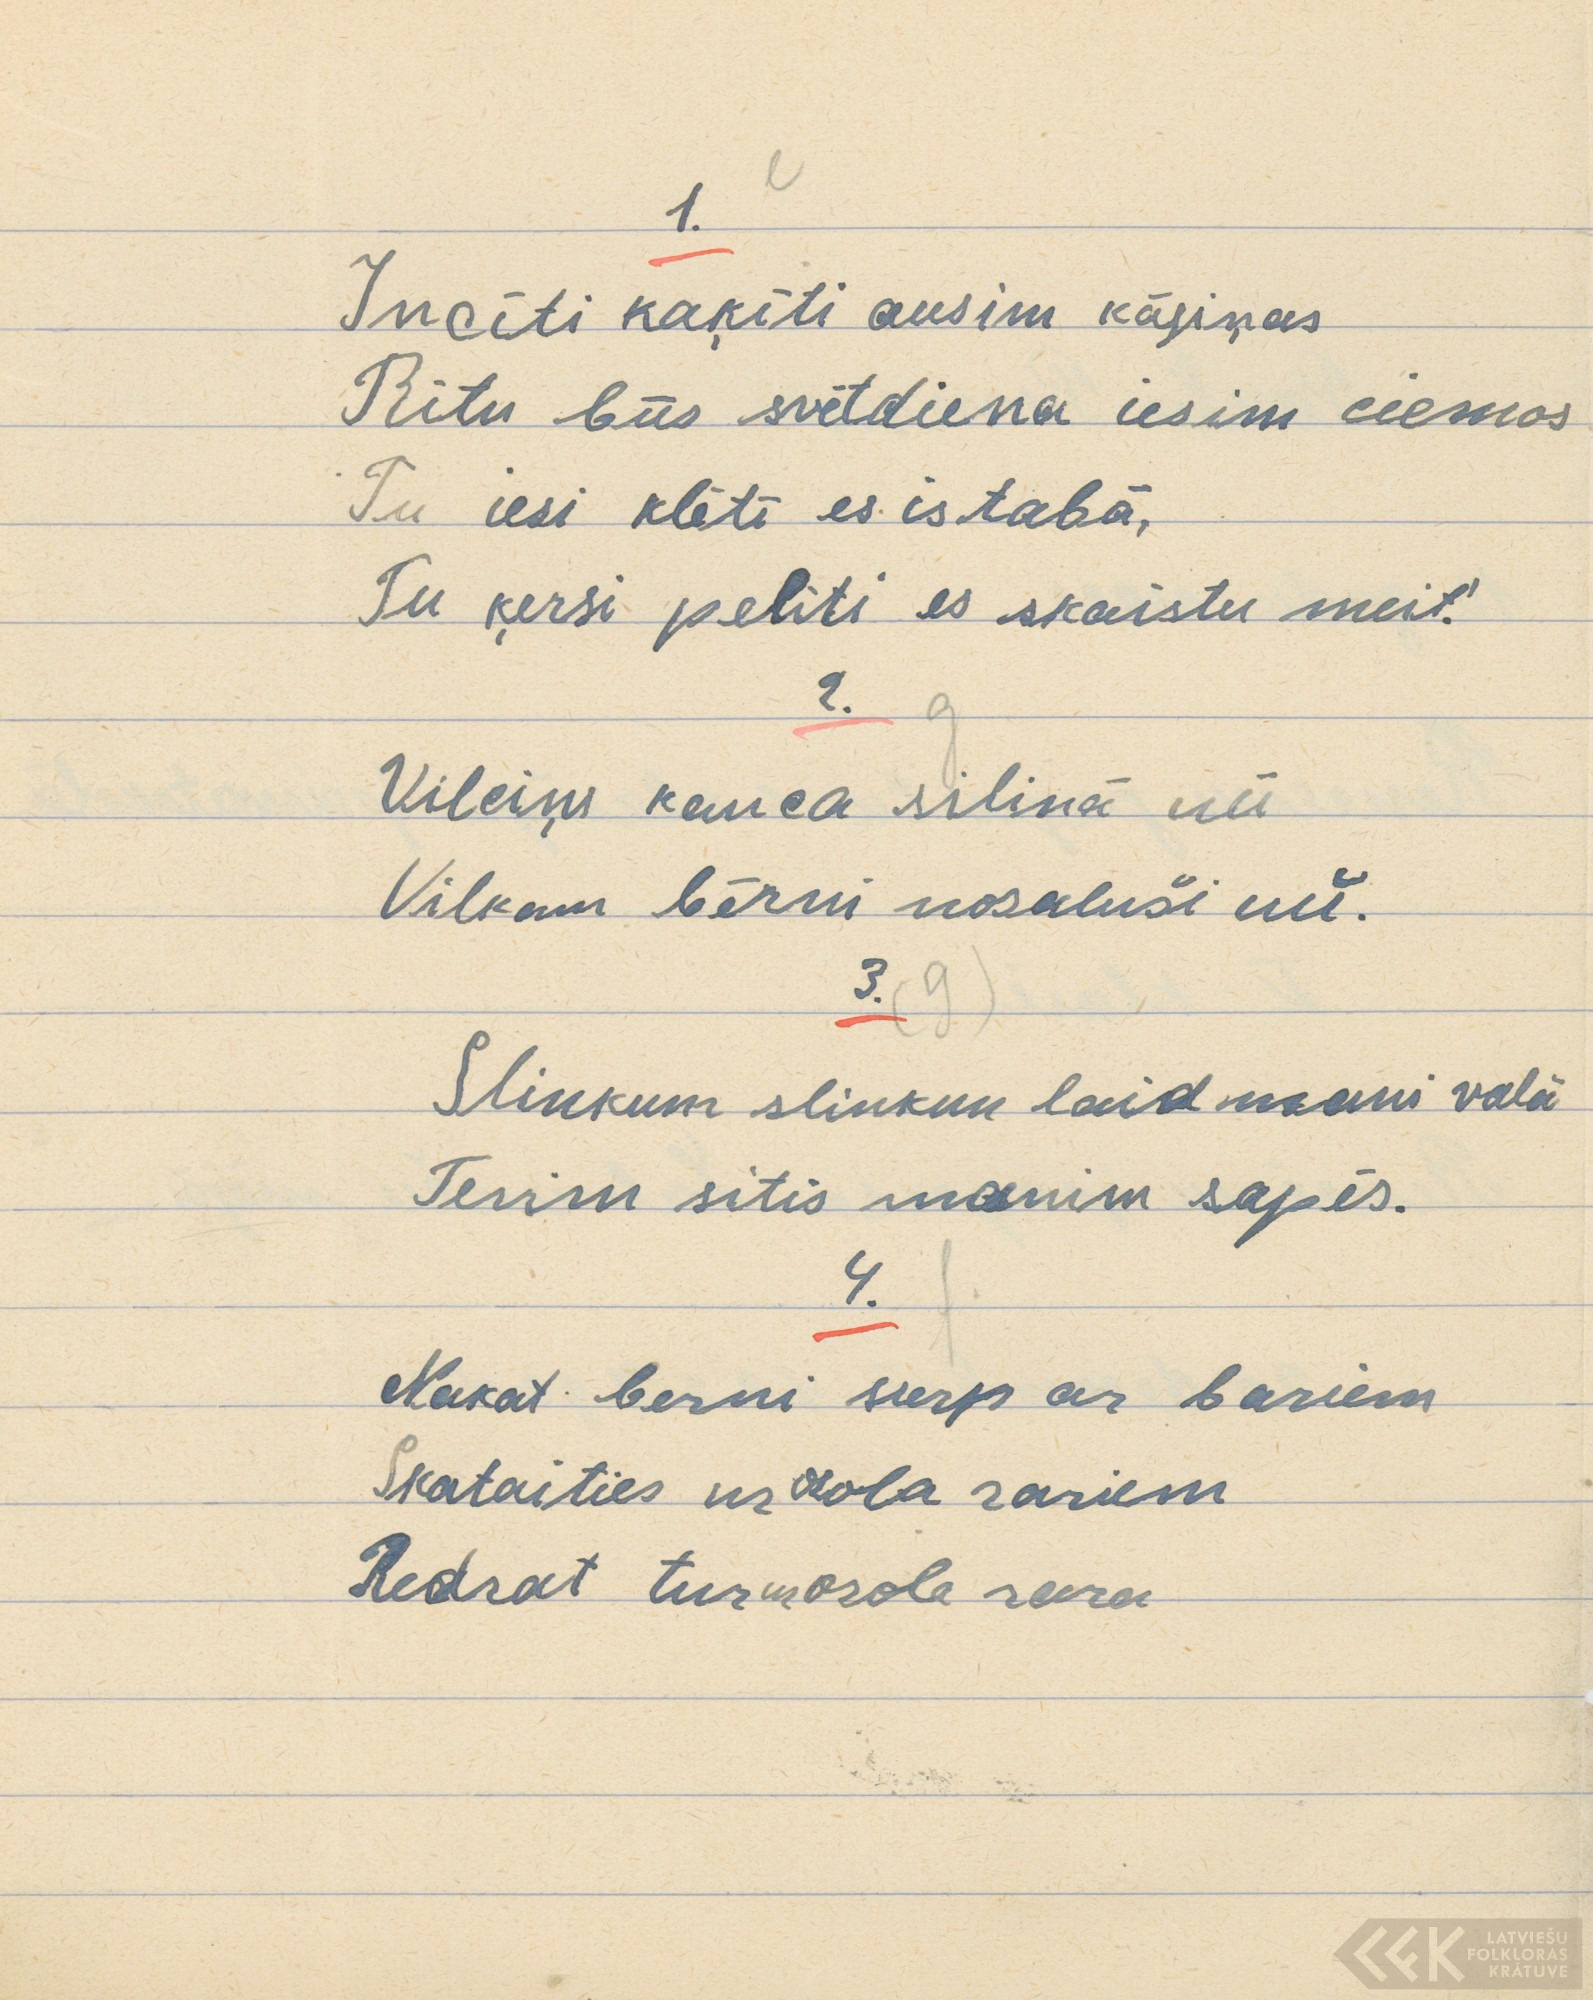 1. e
Incīti kaķīti ausim kājiņas
Rītu būs svētdiena iesim ciemos
Tu iesi klētī es istabā,
Tu ķersi pelīti es skaistu meit!
2. g
Vilciņs kauca siliņā uū
Vilkam bērni nosaluši uū.
3. (g)
Slinkum slinkum laid mani vaļā
Tevim sitīs manim sapēs.
4. f
Nakat berni sverp ar bariem
Skataities uz ozola zariem
Redzat tur uz ozola zara
LATVIEŠU
FOLKLORAS
KRĀTUVE